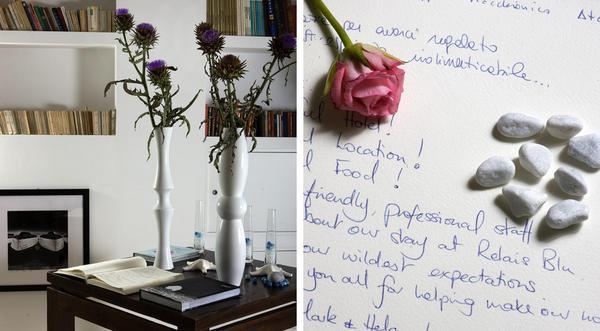 per averci regalato
indimenticabile...
Hotel!
Location!
Food!
friendly, professional staff
bout our stay at Relais Blu
our wildest expectations
you all for helping make our ho